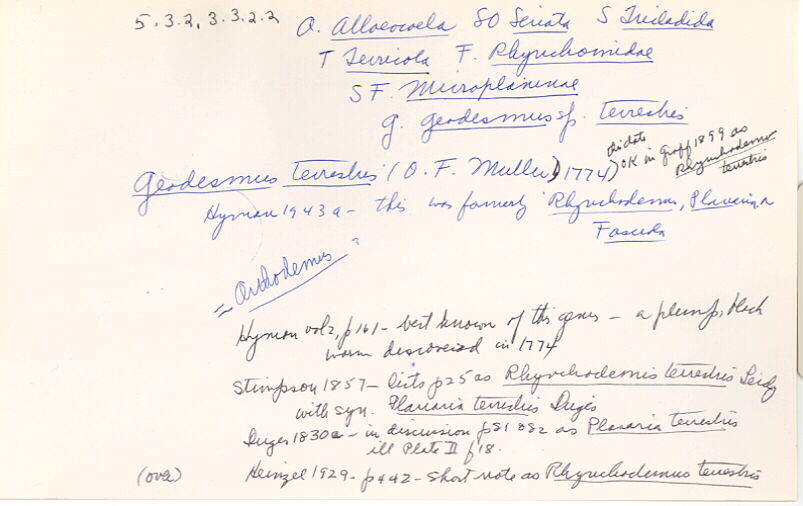 5.3.2, 3.3.2.2 O. Alloeocoela SO Seriata S Tricladida
T Terricola F. Rhynchomidae
SF. Microplaninae
G. Geodesmus sp. terrestris
this date
OK in Graff 1899 as
Rhynchodemus
terrestris
Geodesmus terrestris (O. F. Muller) 1774)
Hyman 1943a - this was formerly Rhynchodemus, Planaria
Fasciola
= Orthodemus ?
Hyman vol 2, p 161 - best known of this genus - a plump, black
worm discovered in 1774
Stimpson 1857 - lists p25 as Rhynchodemis terrestris Leidy
with syn. Planaria terrestris Dugès
Duges 1830a - in discussion p81 & 82 as Planaria terrestris
ill Plate II f 18.
(over) Heinzel 1929 - p442 - short note as Rhynchodemus terrestris